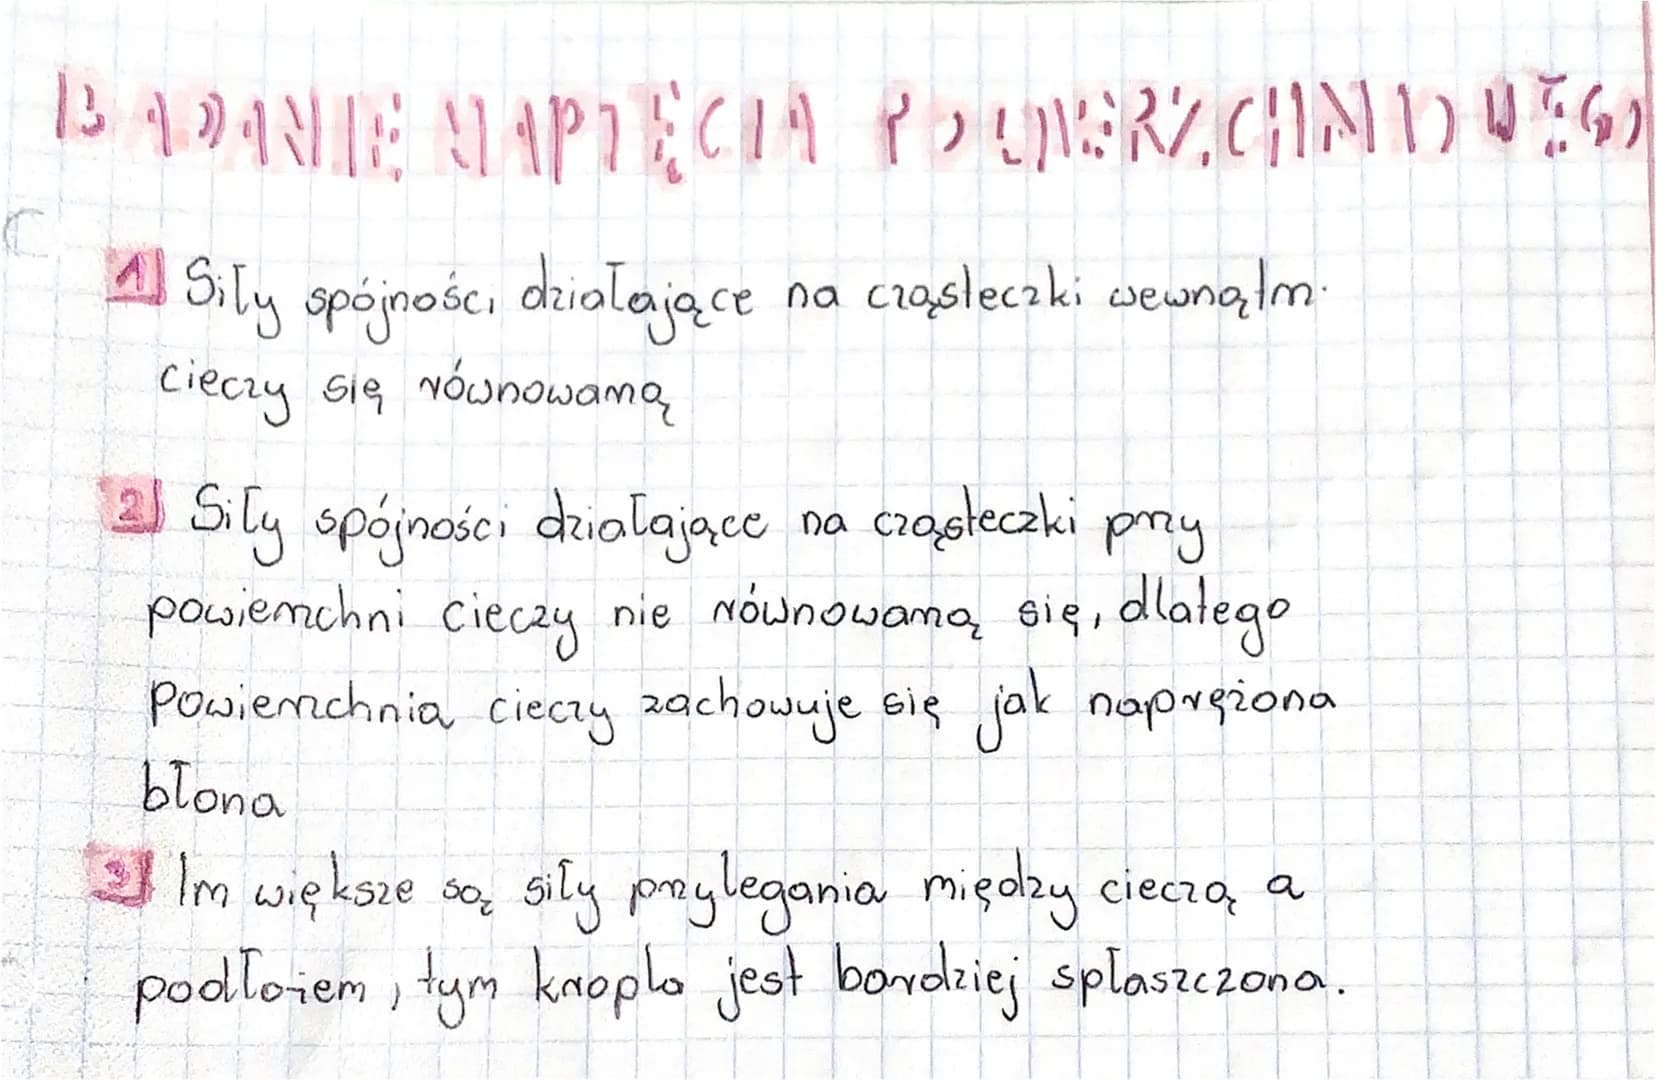 BADANIE NAPIĘCIA POWIERZCHNIOWEGO
1) Siły spójności działające na cząsteczki wewnątrz
cieczy się równoważą
2) Siły spójności działające na cząsteczki przy
powierzchni cieczy nie równoważą się, dlatego
powierzchnia cieczy zachowuje się jak naprężona
błona
3) Im większe są siły przylegania między cieczą a
podłożem, tym kropla jest bardziej spłaszczona.